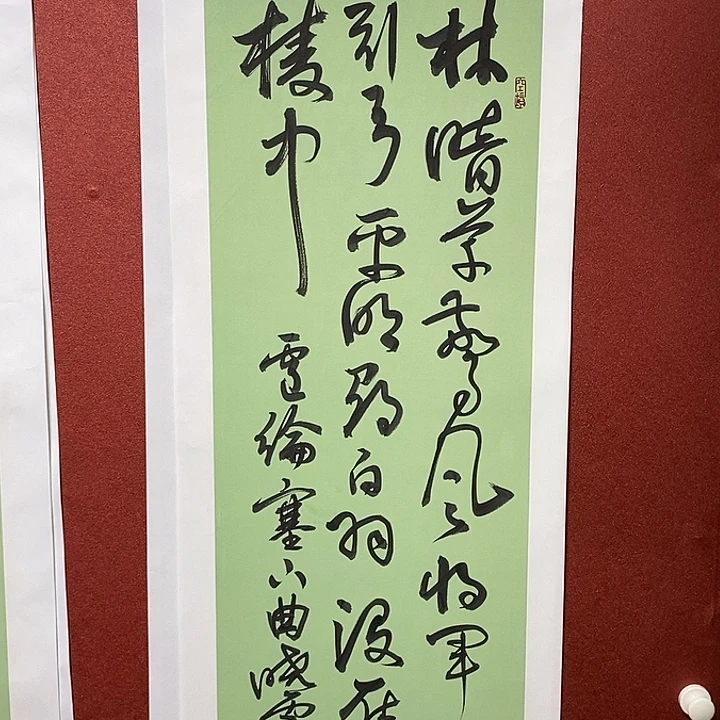 林暗草驚風将軍
引弓平明尋白羽没在
棱中
盧綸塞下曲晓